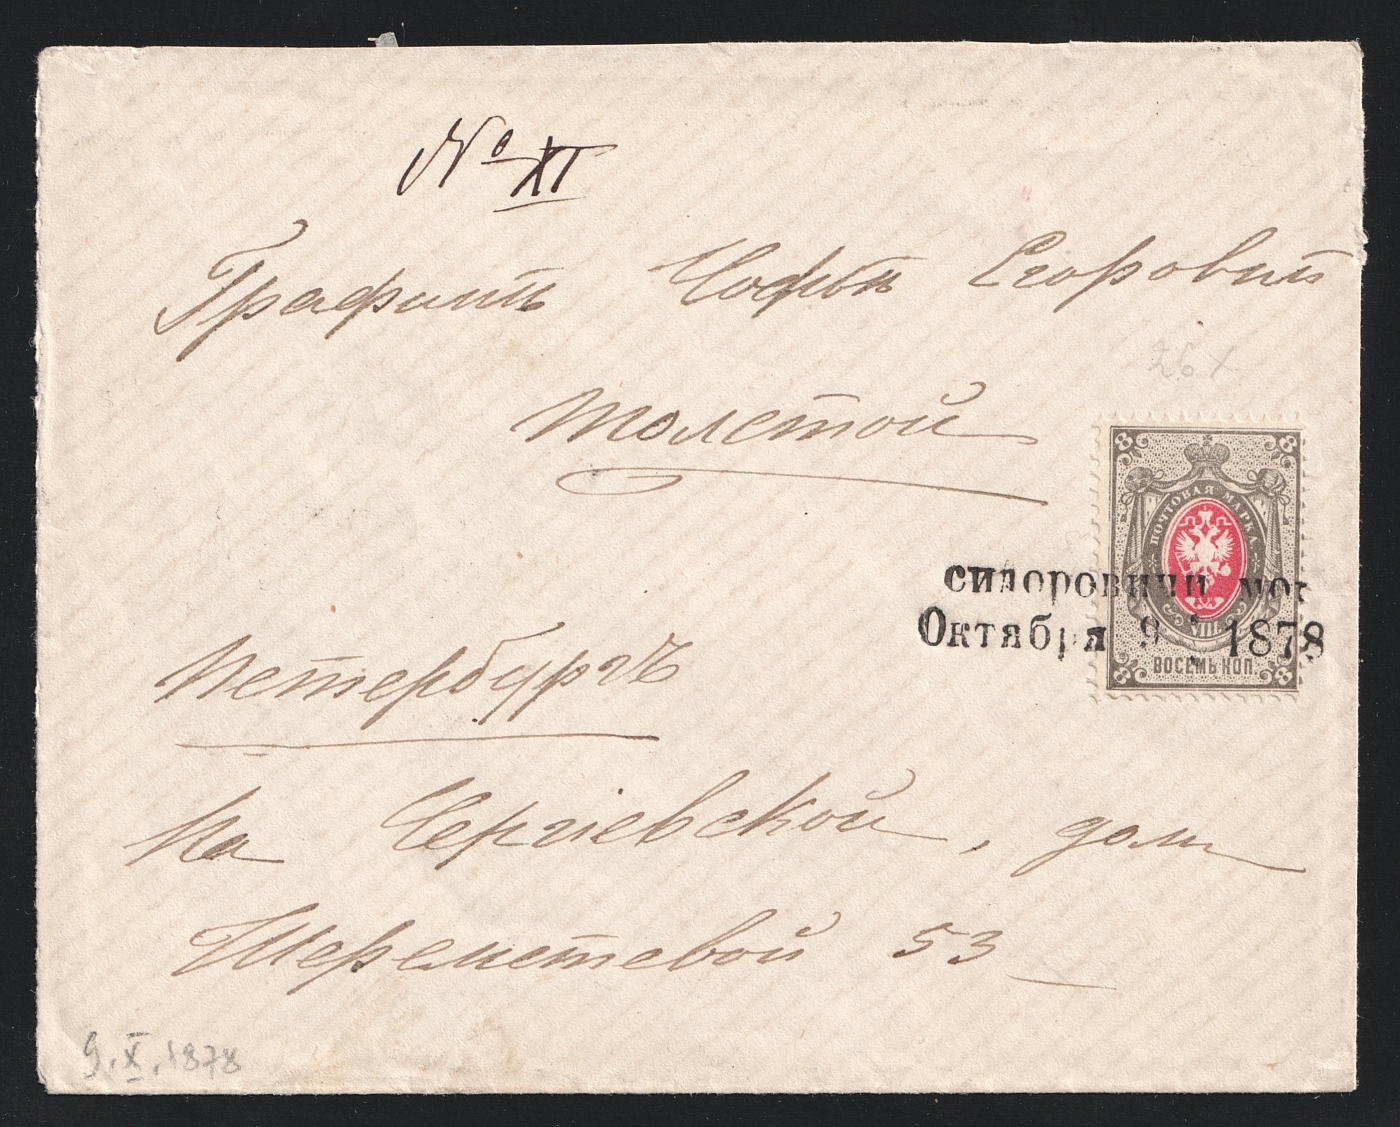 № XI
Графинѣ Софьѣ Егоровнѣ
Толстой
26
8 8
ПОЧТОВАЯ МАРКА
сидоровичи мог
Октября 9 1878
VIII
ВОСЕМЬ КОП
8 8
Петербургъ
На Сергіевской, домъ
Шереметевой 53
9.X.1878